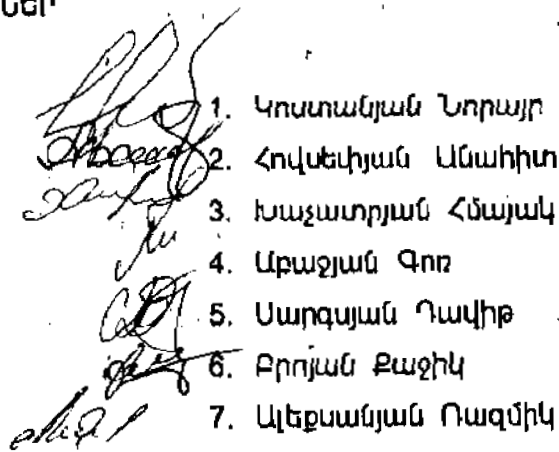 ՆԵՐ
1. Կոստանյան Նորայր
2. Հովսեփյան Անահիտ
3. Խաչատրյան Հմայակ
4. Աբաջյան Գոռ
5. Սարգսյան Դավիթ
6. Բրոյան Քաջիկ
7. Ալեքսանյան Ռազմիկ